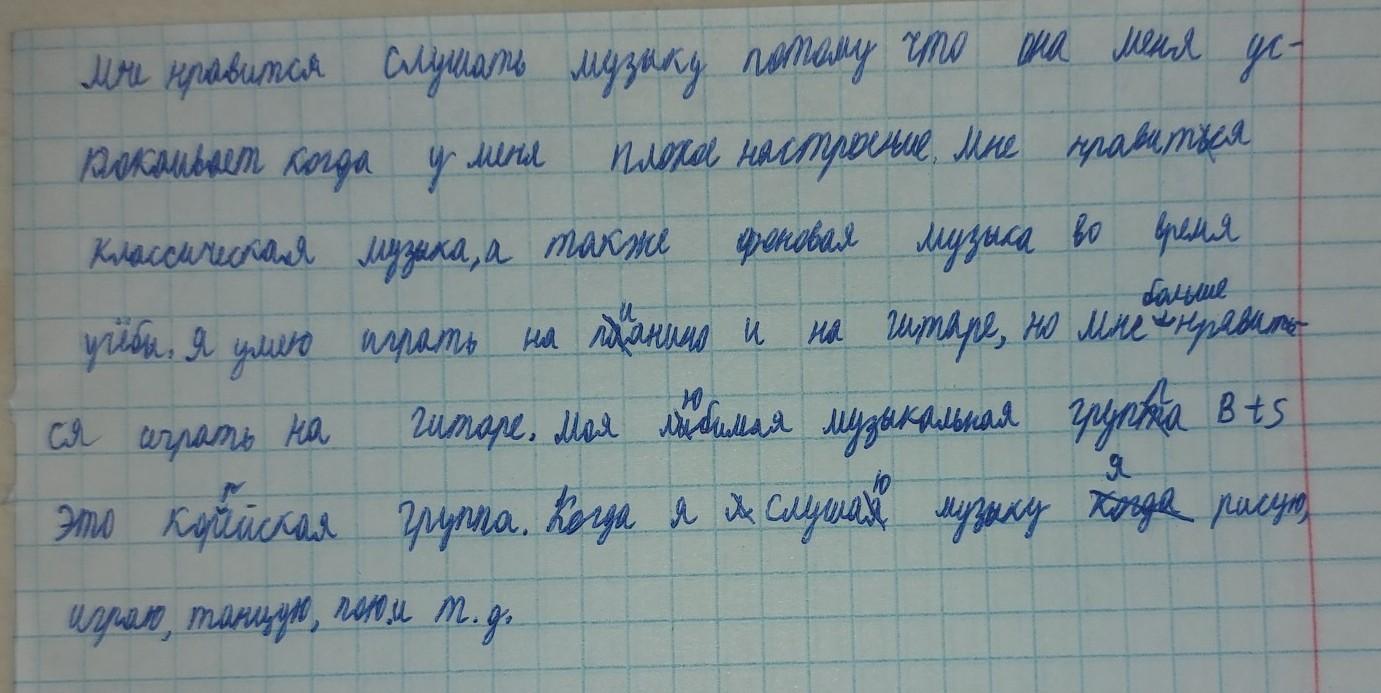 Мне нравится слушать музыку потому что она меня ус-
покаивает когда у меня плохое настроение. Мне нравиться
классическая музыка, а также фоновая музыка во время
учёбы. Я умею играть на пианино и на гитаре, но мне больше нравить-
ся играть на гитаре. Моя любимая музыкальная группа BtS
Это корейская группа. Когда я слушаю музыку я рисую,
играю, танцую, пою и т.д.